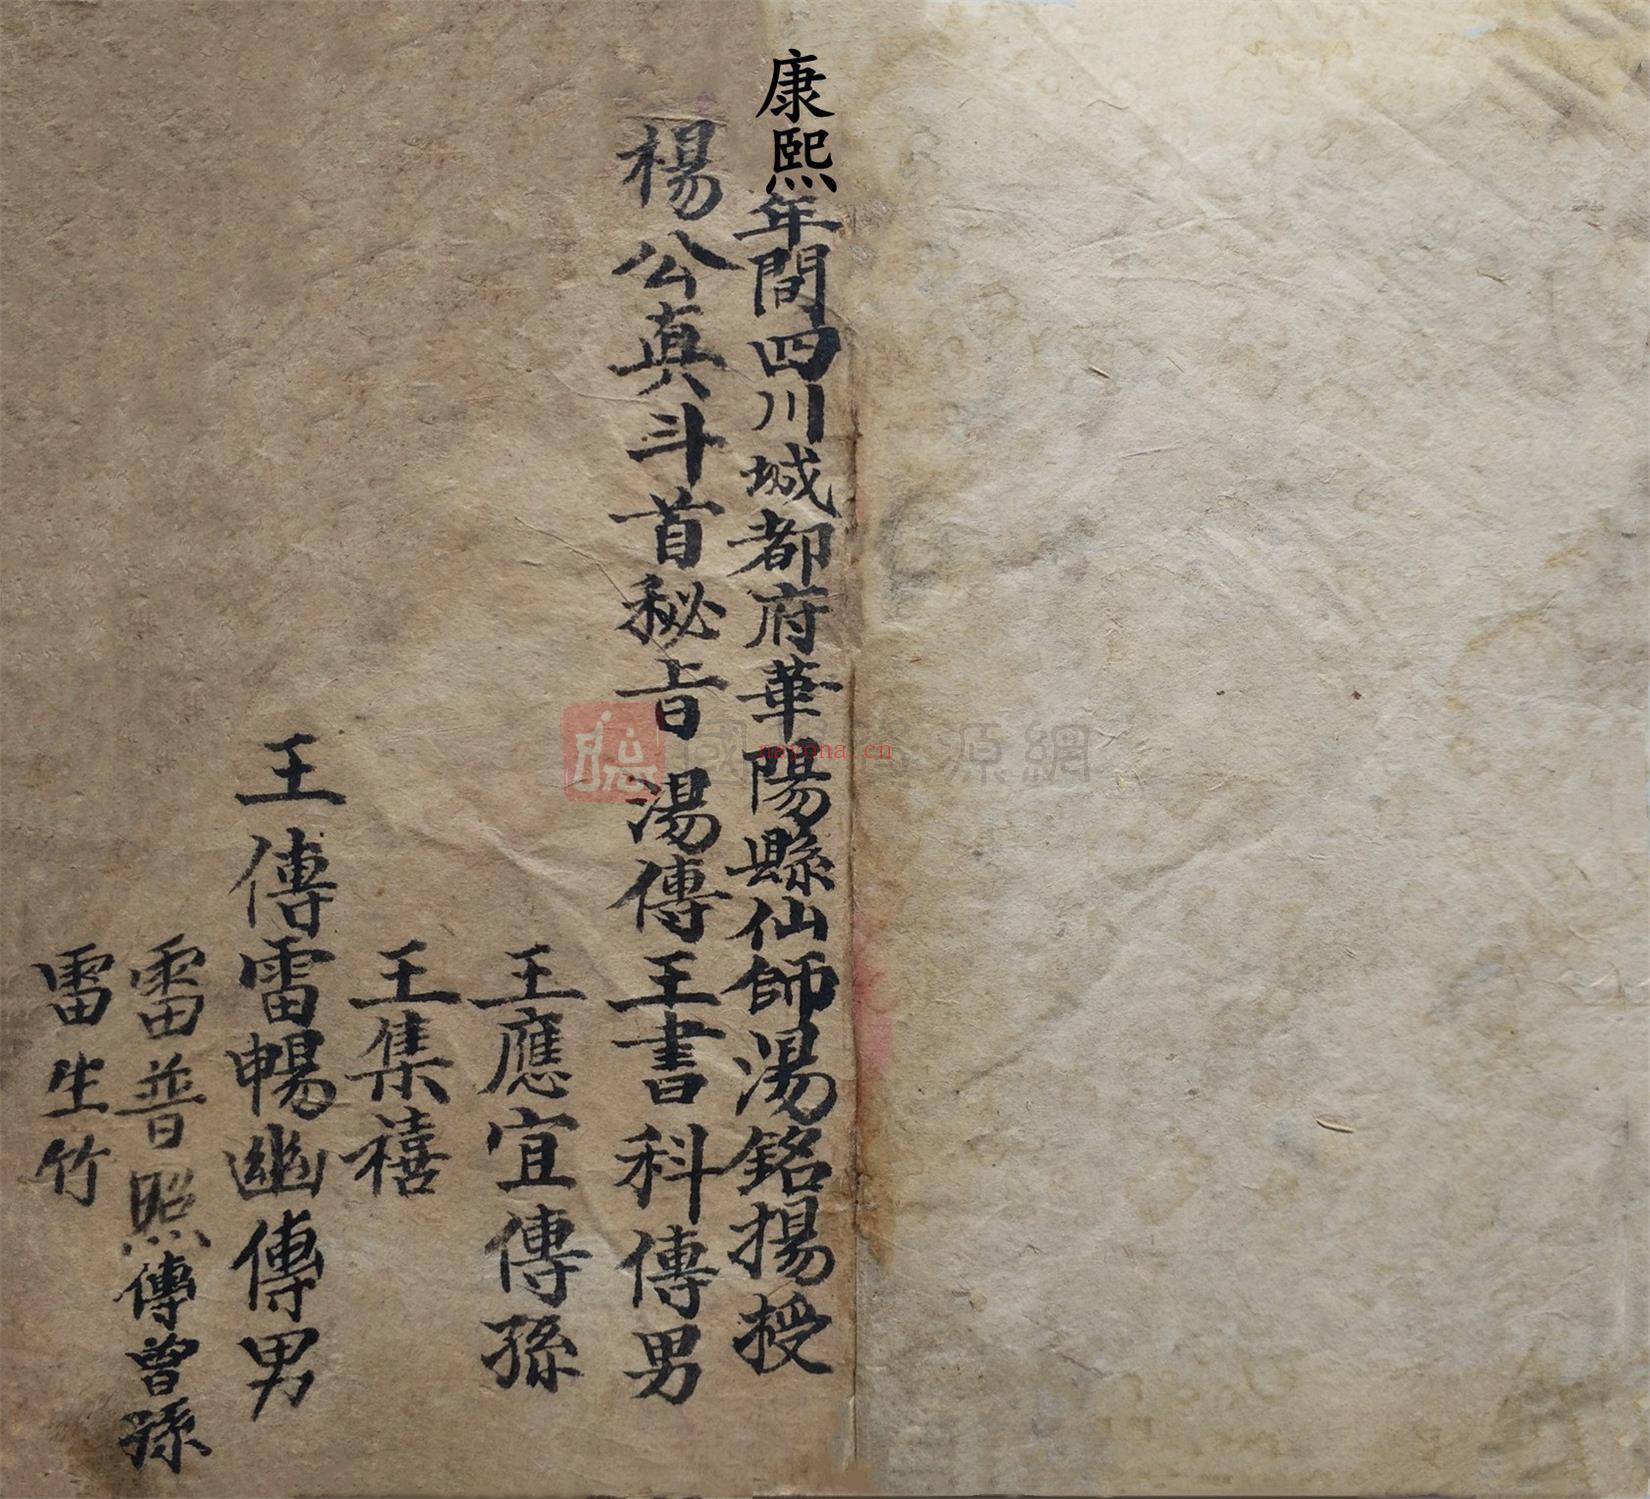 康熙年間四川城都府華陽縣仙師湯銘揚授
楊公真斗首秘旨湯傳王書科傳男
王應宜傳孫
王集禧
王傳雷暢幽傳男
雷普照傳曾孫
雷生竹
國源網
nayona.cn